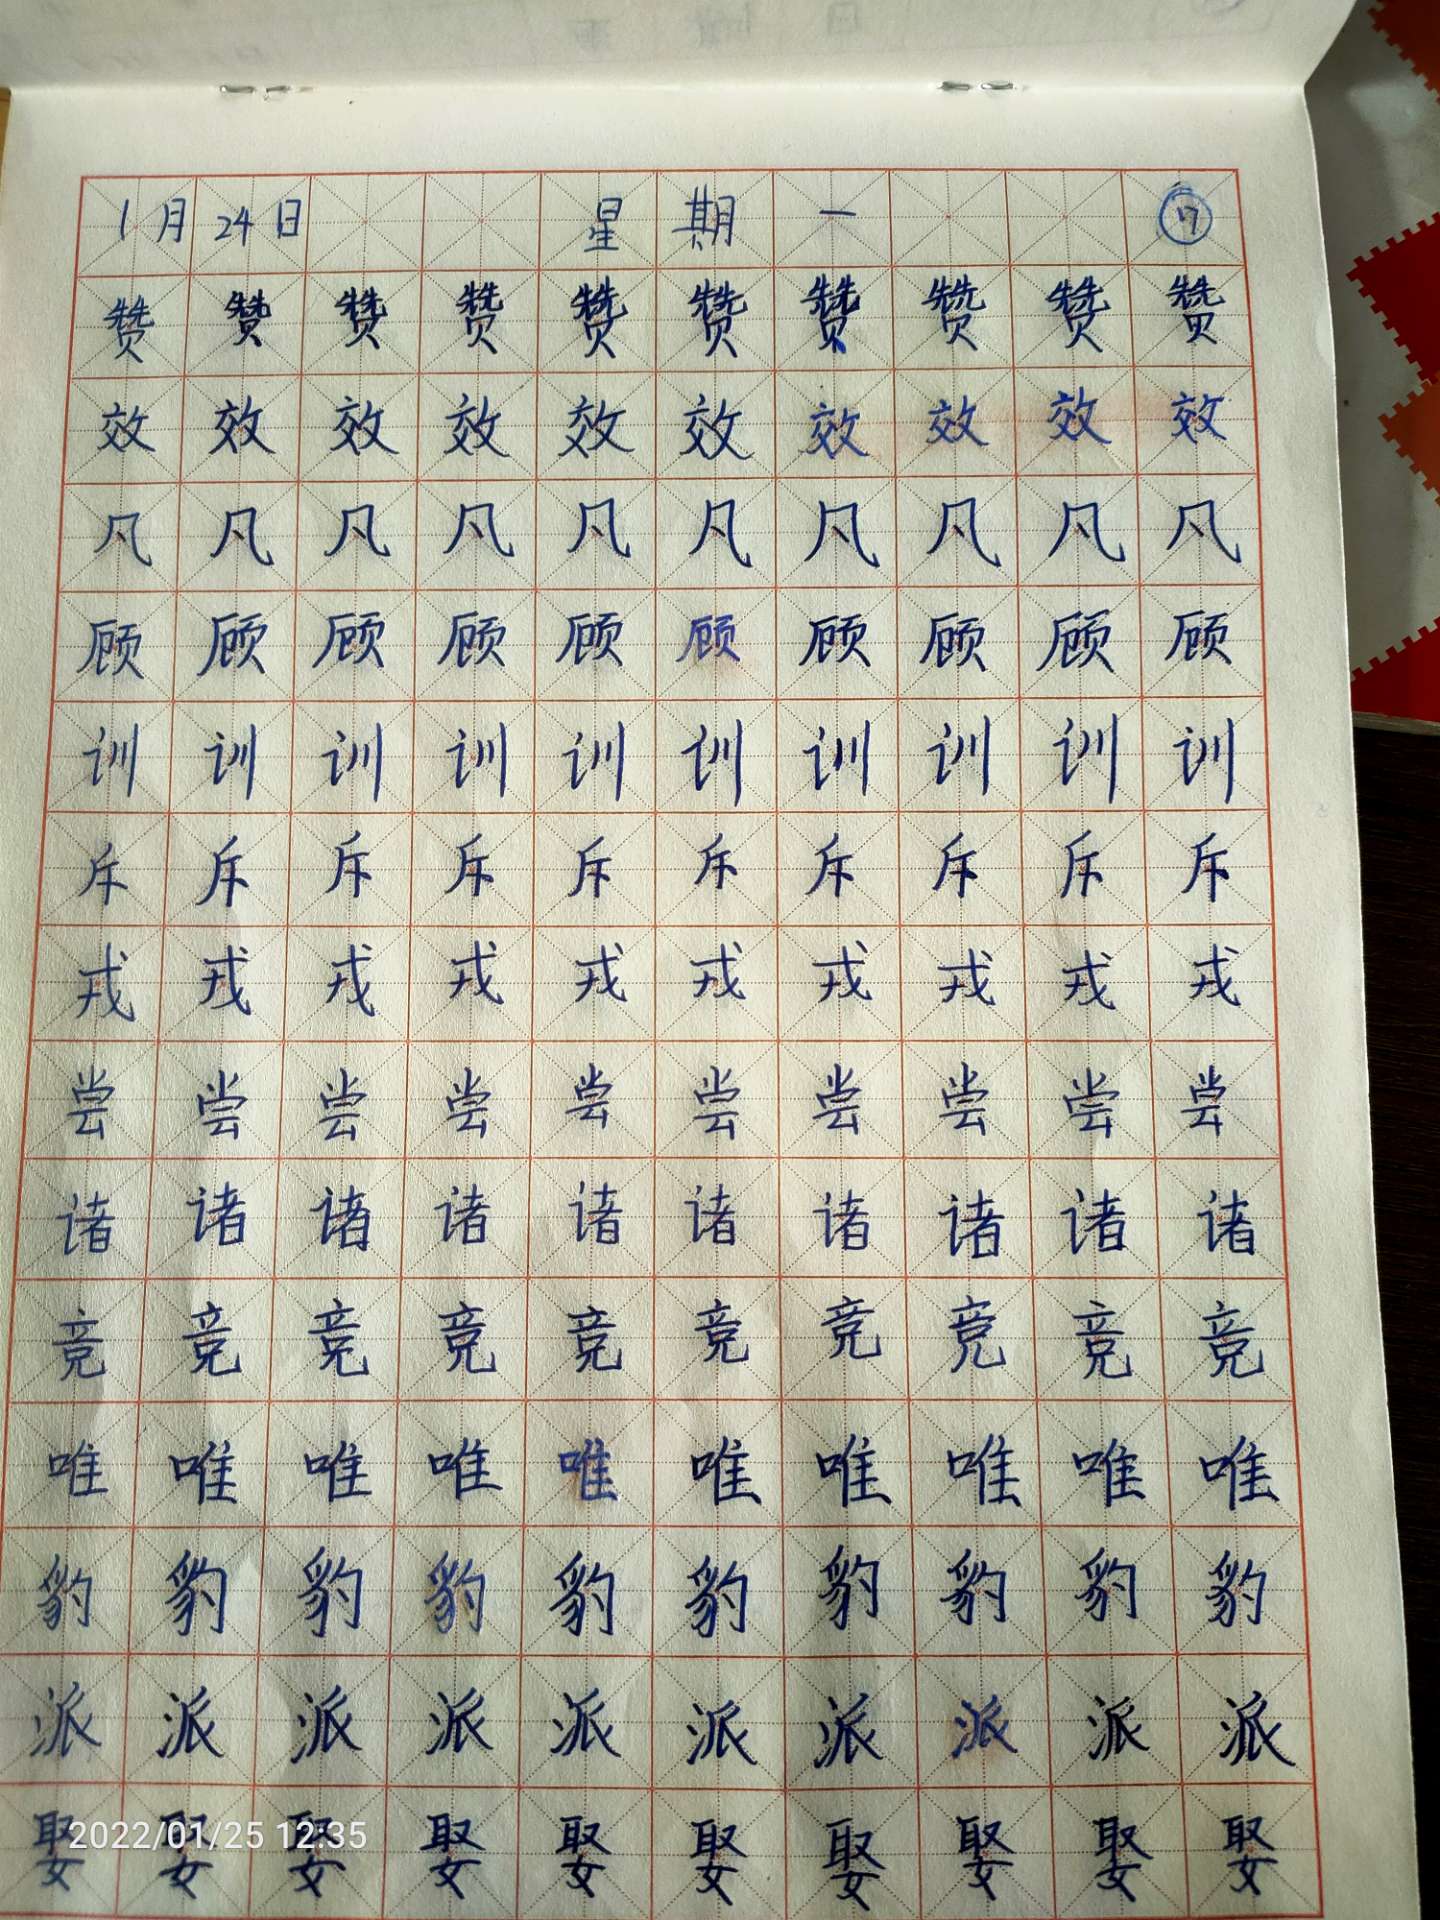 1月24日 星期一 17
赞赞赞赞赞赞赞赞赞赞
效效效效效效效效效效
凡凡凡凡凡凡凡凡凡凡
顾顾顾顾顾顾顾顾顾顾
训训训训训训训训训训
斥斥斥斥斥斥斥斥斥斥
戎戎戎戎戎戎戎戎戎戎
尝尝尝尝尝尝尝尝尝尝
诸诸诸诸诸诸诸诸诸诸
竞竞竞竞竞竞竞竞竞竞
唯唯唯唯唯唯唯唯唯唯
豹豹豹豹豹豹豹豹豹豹
派派派派派派派派派派
娶娶娶娶娶娶娶娶娶娶
2022/01/25 12:35